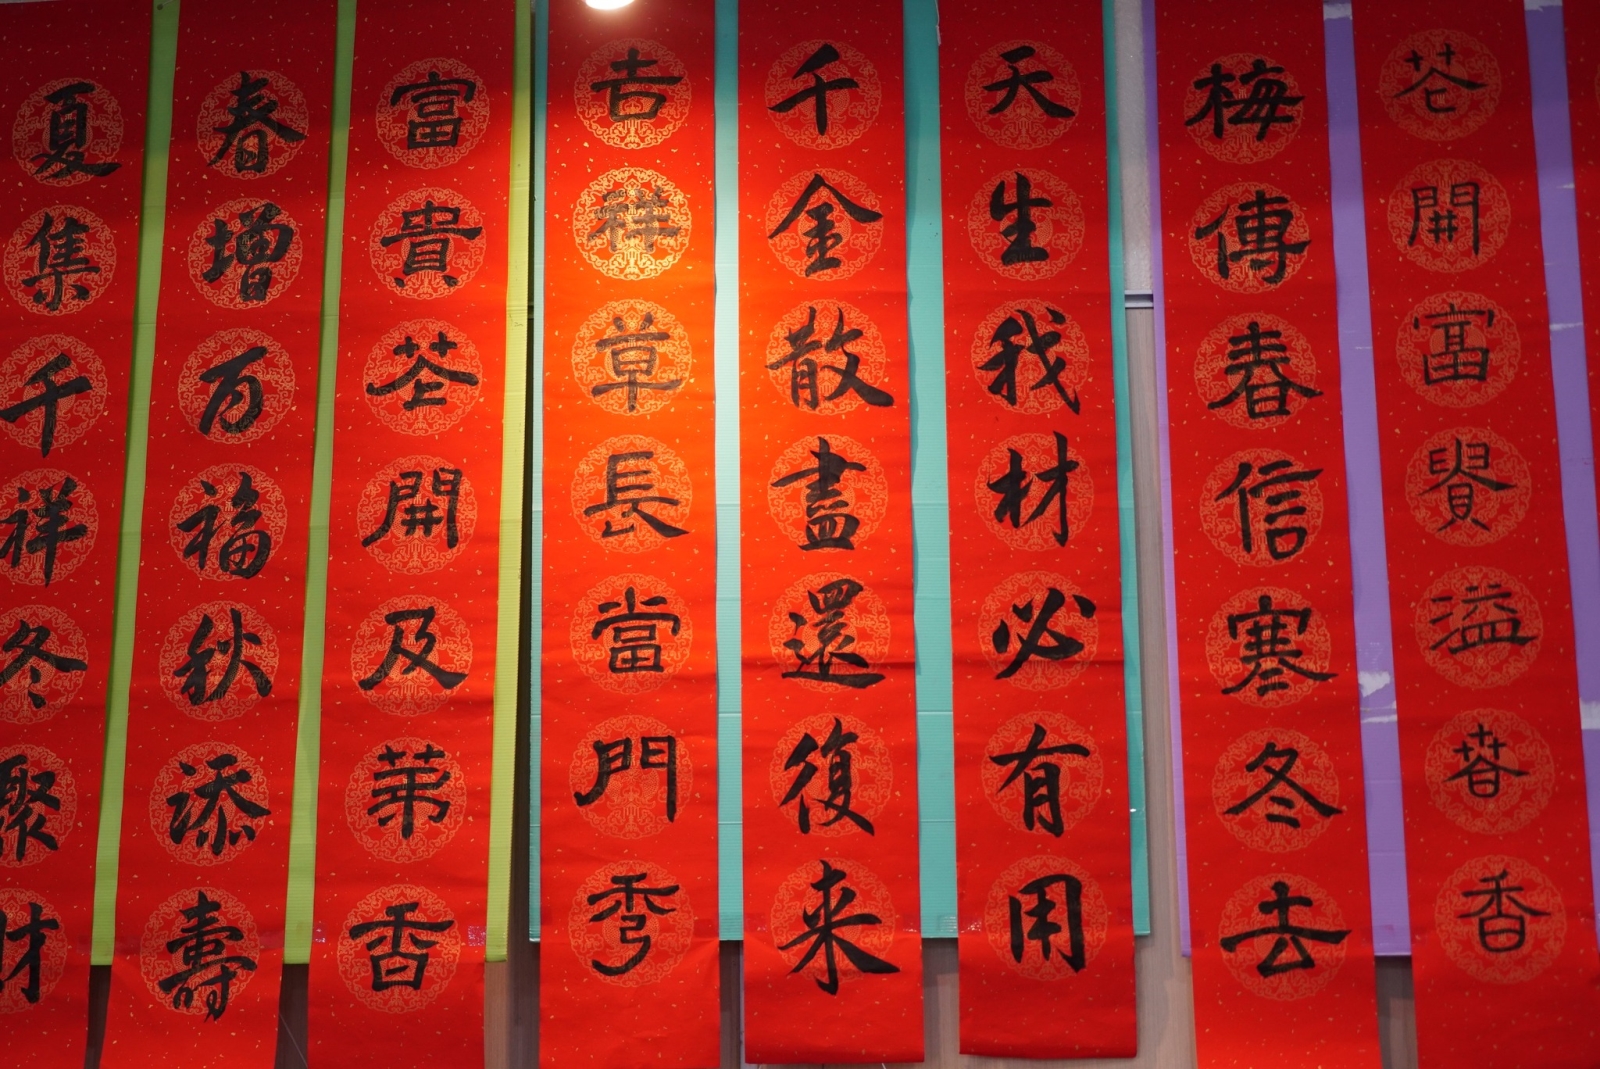 花開富貴溢春香
梅傳春信寒冬去
天生我材必有用
千金散盡還復来
吉祥草長當門秀
富貴花開及第香
春增百福秋添壽
夏集千祥冬聚財